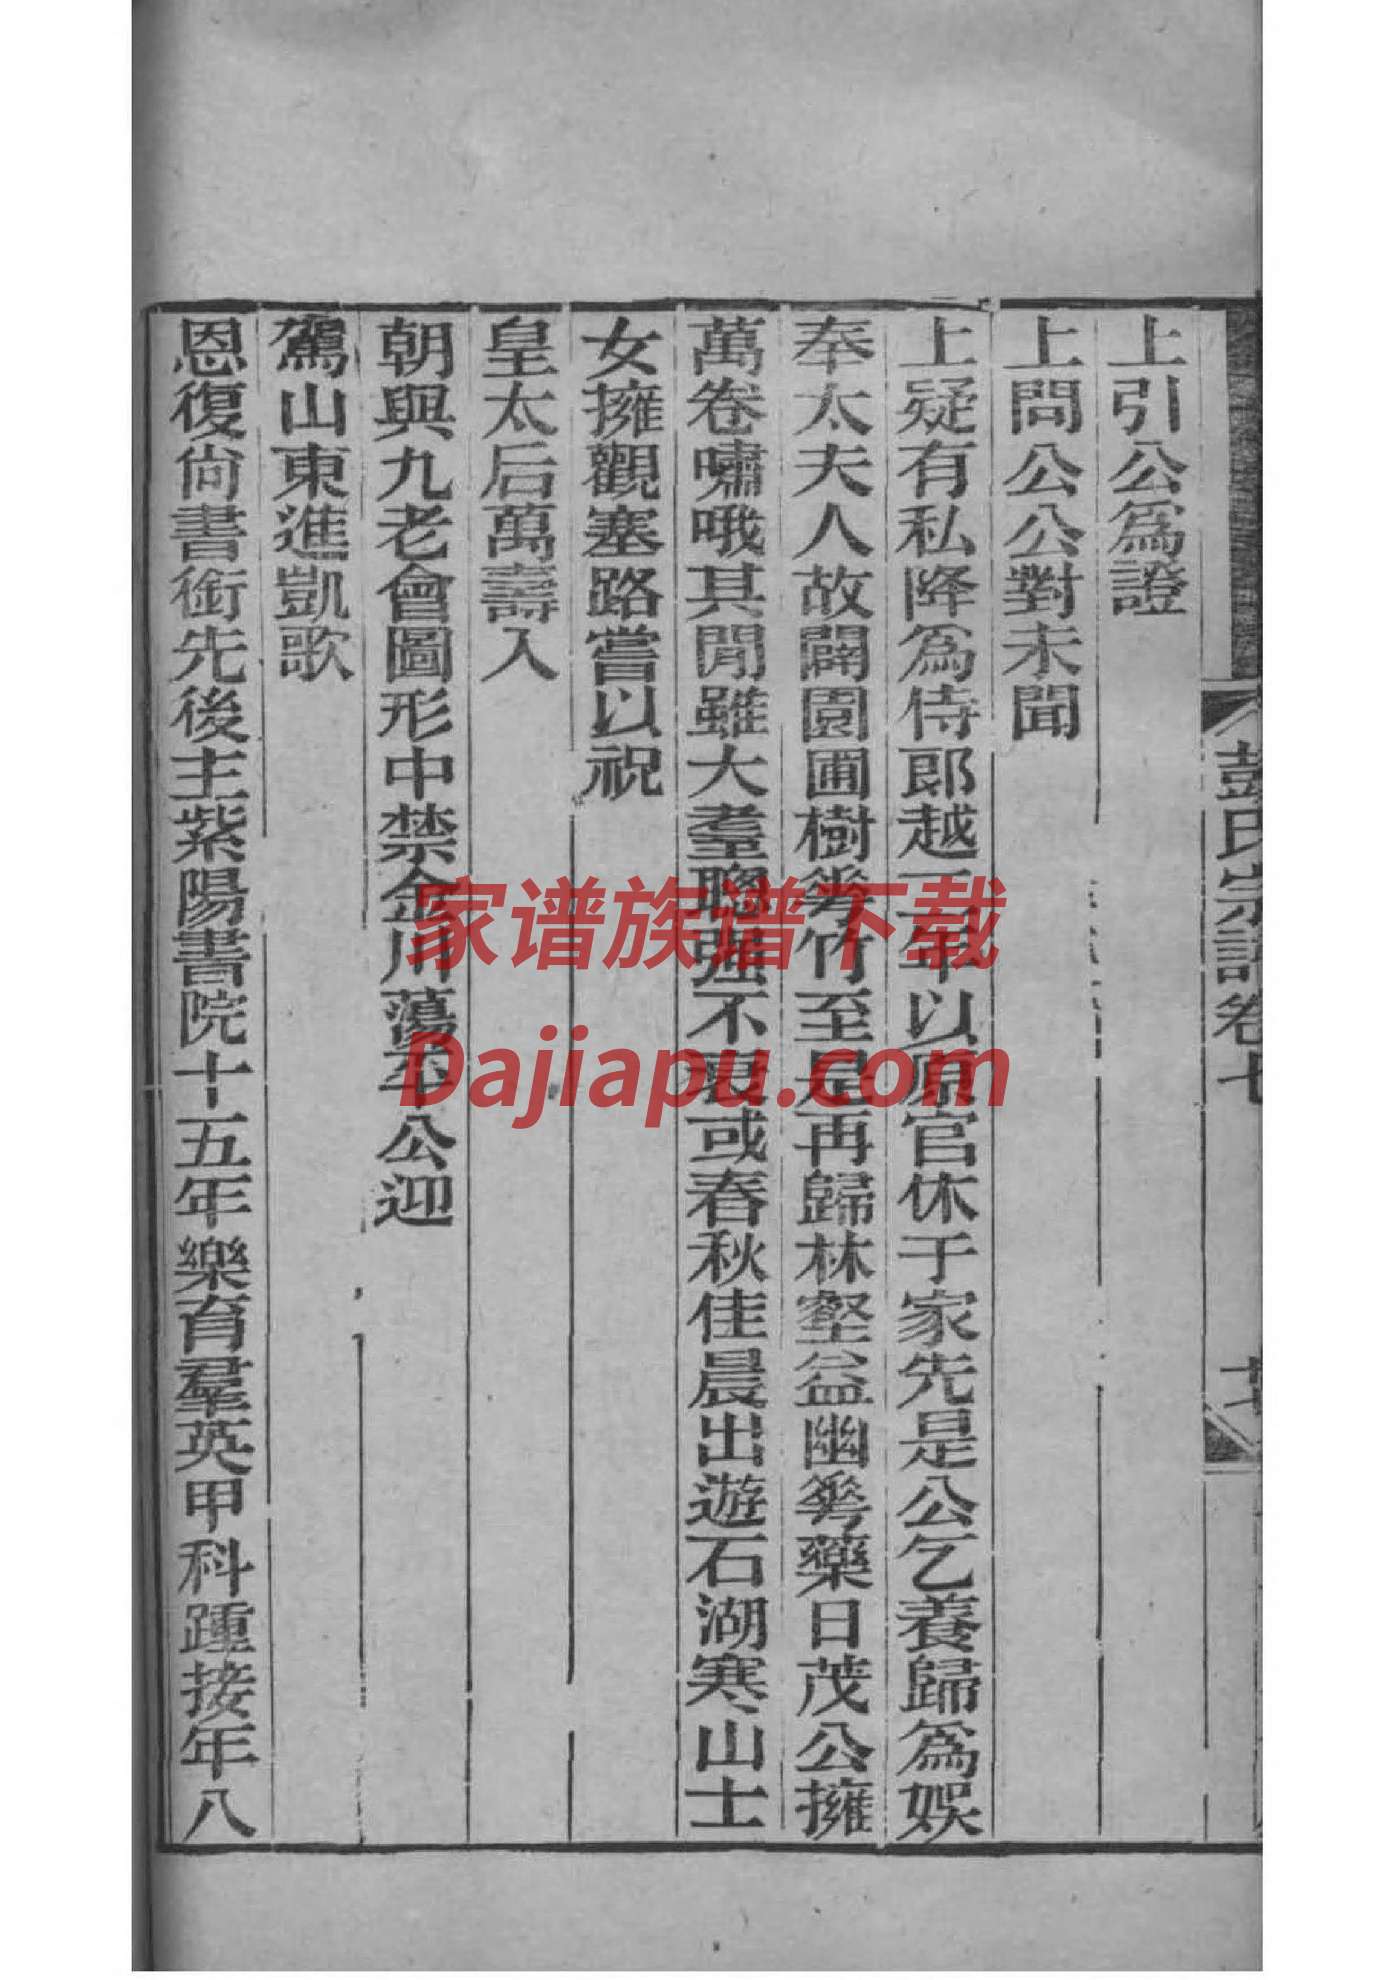 彭氏宗譜卷七
上引公爲證
上問公公對未聞
上疑有私降爲侍郎越二年以原官休于家先是公乞養歸爲娛
奉太夫人故闢園圃樹蕐竹至是再歸林壑益幽蕐藥日茂公擁
萬卷嘯哦其閒雖大耋聰強不衰或春秋佳晨出遊石湖寒山士
女擁觀塞路嘗以祝
皇太后萬壽入
朝與九老會圖形中禁金川蕩平公迎
駕山東進凱歌
恩復尙書銜先後主紫陽書院十五年樂育羣英甲科踵接年八
家谱族谱下载
Dajiapu.com